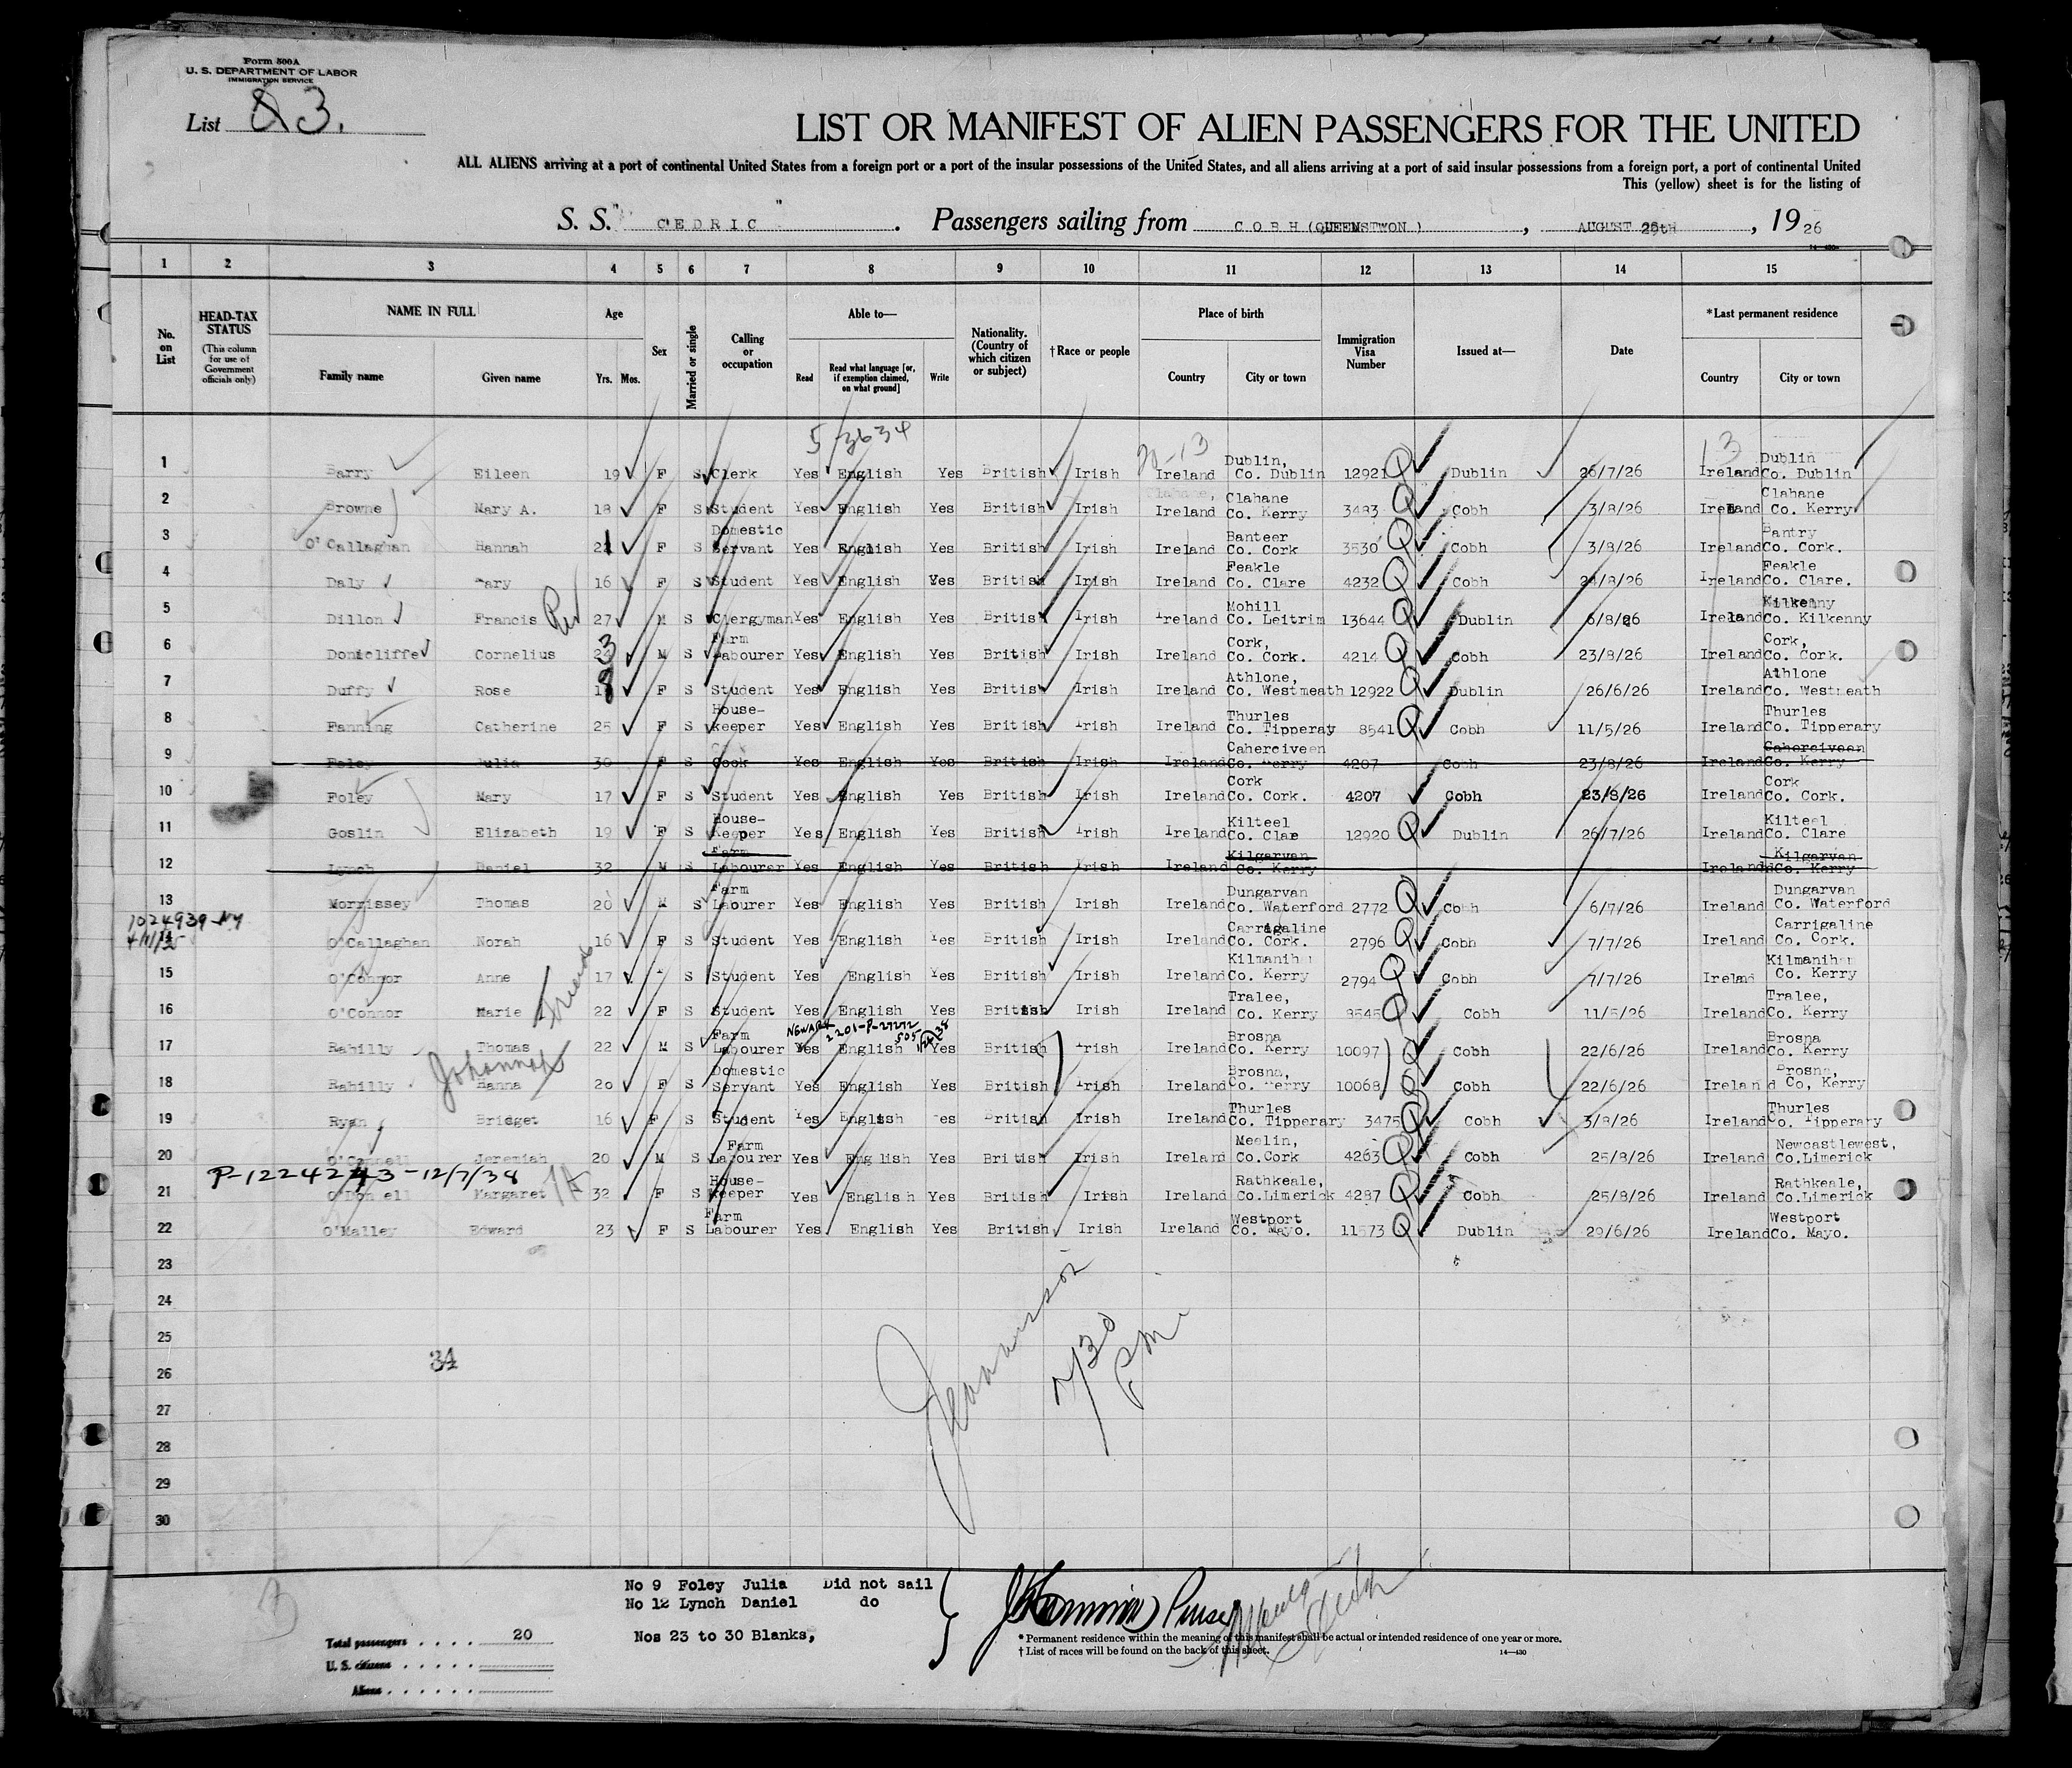 Form 500A
U. S. DEPARTMENT OF LABOR
IMMIGRATION SERVICE
List 3.
LIST OR MANIFEST OF ALIEN PASSENGERS FOR THE UNITED
ALL ALIENS arriving at a port of continental United States from a foreign port or a port of the insular possessions of the United States, and all aliens arriving at a port of said insular possessions from a foreign port, a port of continental United
This (yellow) sheet is for the listing of
S. S. "CEDRIC". Passengers sailing from COBH (QUEENSTWON), AUGUST , 1926
1 2 3 4 5 6 7 8 9 10 11 12 13 14 15
No. on List
HEAD-TAX STATUS
(This column for use of Government officials only)
NAME IN FULL
Family name Given name
Age
Yrs. Mos.
Sex
Married or single
Calling or occupation
Able to—
Read
Read what language [or, if exemption claimed, on what ground]
Write
Nationality. (Country of which citizen or subject)
†Race or people
Place of birth
Country City or town
Immigration Visa Number
Issued at—
Date
*Last permanent residence
Country City or town
5-3634
13
1 Barry Eileen 19 F S Clerk Yes English Yes British Irish Ireland Dublin, Co. Dublin 12921 Dublin 26/7/26 Ireland Dublin Co. Dublin
2 Browne Mary A. 18 F S Student Yes English Yes British Irish Ireland Clahane Co. Kerry 3483 Cobh 3/8/26 Ireland Clahane Co. Kerry
3 O'Callaghan Hannah 21 F S Domestic Servant Yes English Yes British Irish Ireland Banteer Co. Cork 3530 Cobh 3/8/26 Ireland Bantry Co. Cork.
4 Daly Mary 16 F S Student Yes English Yes British Irish Ireland Feakle Co. Clare 4232 Cobh 24/8/26 Ireland Feakle Co. Clare.
5 Dillon Francis Rev 27 M S Clergyman Yes English Yes British Irish Ireland Mohill Co. Leitrim 13644 Dublin 6/8/26 Ireland Kilkenny Co. Kilkenny
6 Donicliffe Cornelius 23 M S Farm Labourer Yes English Yes British Irish Ireland Cork, Co. Cork. 4214 Cobh 23/8/26 Ireland Cork, Co. Cork.
7 Duffy Rose 18 F S Student Yes English Yes British Irish Ireland Athlone, Co. Westmeath 12922 Dublin 26/6/26 Ireland Athlone Co. Westmeath
8 Fanning Catherine 25 F S House-keeper Yes English Yes British Irish Ireland Thurles Co. Tipperay 8541 Cobh 11/5/26 Ireland Thurles Co. Tipperary
9 Foley Julia 30 F S Cook Yes English Yes British Irish Ireland Caherciveen Co. Kerry 4207 Cobh 23/8/26 Ireland Caherciveen Co. Kerry
10 Foley Mary 17 F S Student Yes English Yes British Irish Ireland Cork Co. Cork. 4207 Cobh 23/8/26 Ireland Cork Co. Cork.
11 Goslin Elizabeth 19 F S House-Keeper Yes English Yes British Irish Ireland Kilteel Co. Clae 12920 Dublin 26/7/26 Ireland Kilteel Co. Clare
12 Lynch Daniel 32 M S Farm Labourer Yes English Yes British Irish Ireland Kilgarvan Co. Kerry Ireland Kilgarvan Co. Kerry
13 Morrissey Thomas 20 M S Farm Laourer Yes English Yes British Irish Ireland Dungarvan Co. Waterford 2772 Cobh 6/7/26 Ireland Dungarvan Co. Waterford
1024939-NY
O'Callaghan Norah 16 F S Student Yes English Yes British Irish Ireland Carrigaline Co. Cork. 2796 Cobh 7/7/26 Ireland Carrigaline Co. Cork.
15 O'Connor Anne 17 S Student Yes English Yes British Irish Ireland Kilmanihan Co. Kerry 2794 Cobh 7/7/26 Ireland Kilmanihan Co. Kerry
16 O'Connor Marie 22 F S Student Yes English Yes British Irish Ireland Tralee, Co. Kerry 8545 Cobh 11/5/26 Ireland Tralee, Co. Kerry
NEWARK 2201-P-27272
17 Rahilly Thomas 22 M S Farm Labourer Yes English Yes British Irish Ireland Brosna Co. Kerry 10097 Cobh 22/6/26 Ireland Brosna Co. Kerry
Johannah
18 Rahilly Hanna 20 F S Domestic Servant Yes English Yes British Irish Ireland Brosna, Co. Kerry 10068 Cobh 22/6/26 Ireland Brosna, Co, Kerry
19 Ryan Bridget 16 F S Student Yes English Yes British Irish Ireland Thurles Co. Tipperary 3475 Cobh 3/8/26 Ireland Thurles Co. Tipperary
20 O'Connell Jeremiah 20 M S Farm Labourer Yes English Yes British Irish Ireland Meelin, Co.Cork 4263 Cobh 25/8/26 Ireland Newcastlewest, Co.Limerick
P-1224243-12/7/38
21 O'Donnell Margaret 32 F S House-keeper Yes English Yes British Irish Ireland Rathkeale, Co.Limerick 4287 Cobh 25/8/26 Ireland Rathkeale, Co.Limerick
22 O'Malley Edward 23 F S Farm Labourer Yes English Yes British Irish Ireland Westport Co. Mayo. 11573 Dublin 29/6/26 Ireland Westport Co. Mayo.
23
24
25
26
27
28
29
30
34
7/30 PM
No 9 Foley Julia Did not sail
No 12 Lynch Daniel do
Nos 23 to 30 Blanks,
Purser
Total passengers . . . . 20
U. S. citizens . . . . .
Aliens . . . . . .
* Permanent residence within the meaning of this manifest shall be actual or intended residence of one year or more.
† List of races will be found on the back of this sheet.
14—430